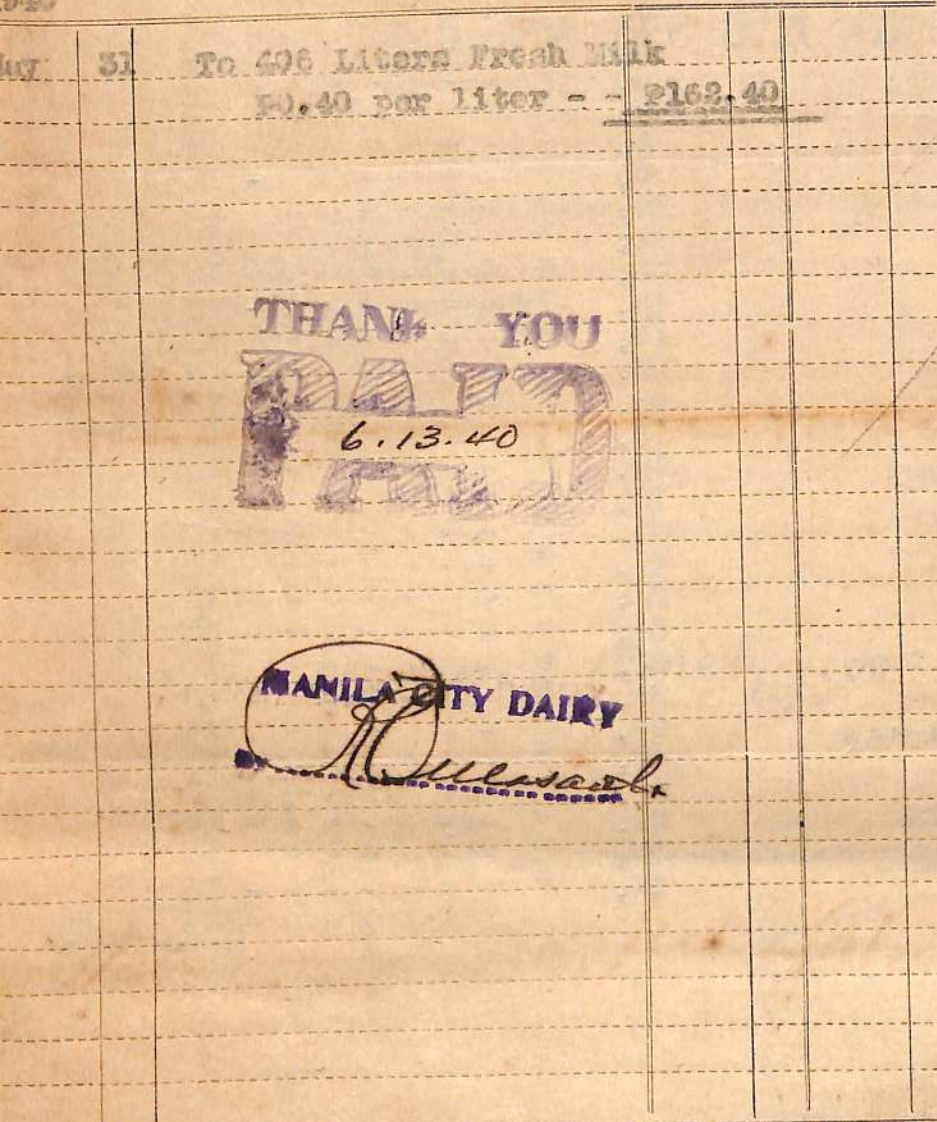 1940
May 31 To 406 Liters Fresh Milk
₱0.40 per liter - - ₱162.40
THANK YOU
PAID
6.13.40
MANILA CITY DAIRY
BY